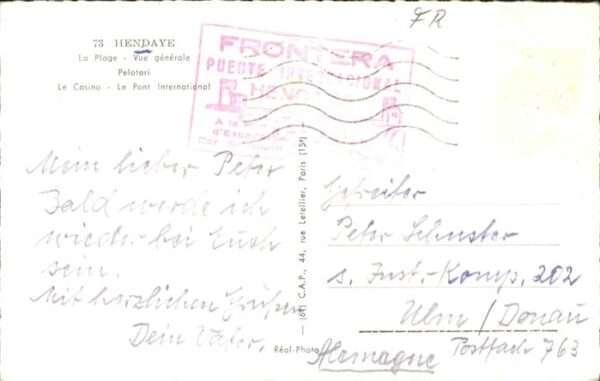 FR
73 HENDAYE
La Plage - Vue générale
Pelotari
Le Casino - Le Pont International
FRONTERA
PUENTE INTERNACIONAL
A la
Mein lieber Peter
Bald werde ich
wieder bei Euch
sein.
Mit herzlichen Grüßen
Dein Vater.
Réal-Photo — (6e) C.A.P., 44, rue Letellier, Paris (15e)
Gefreiter
Peter Schuster
s. Inst.-Komp. 202
Ulm / Donau
Postfach 763
Alemagne